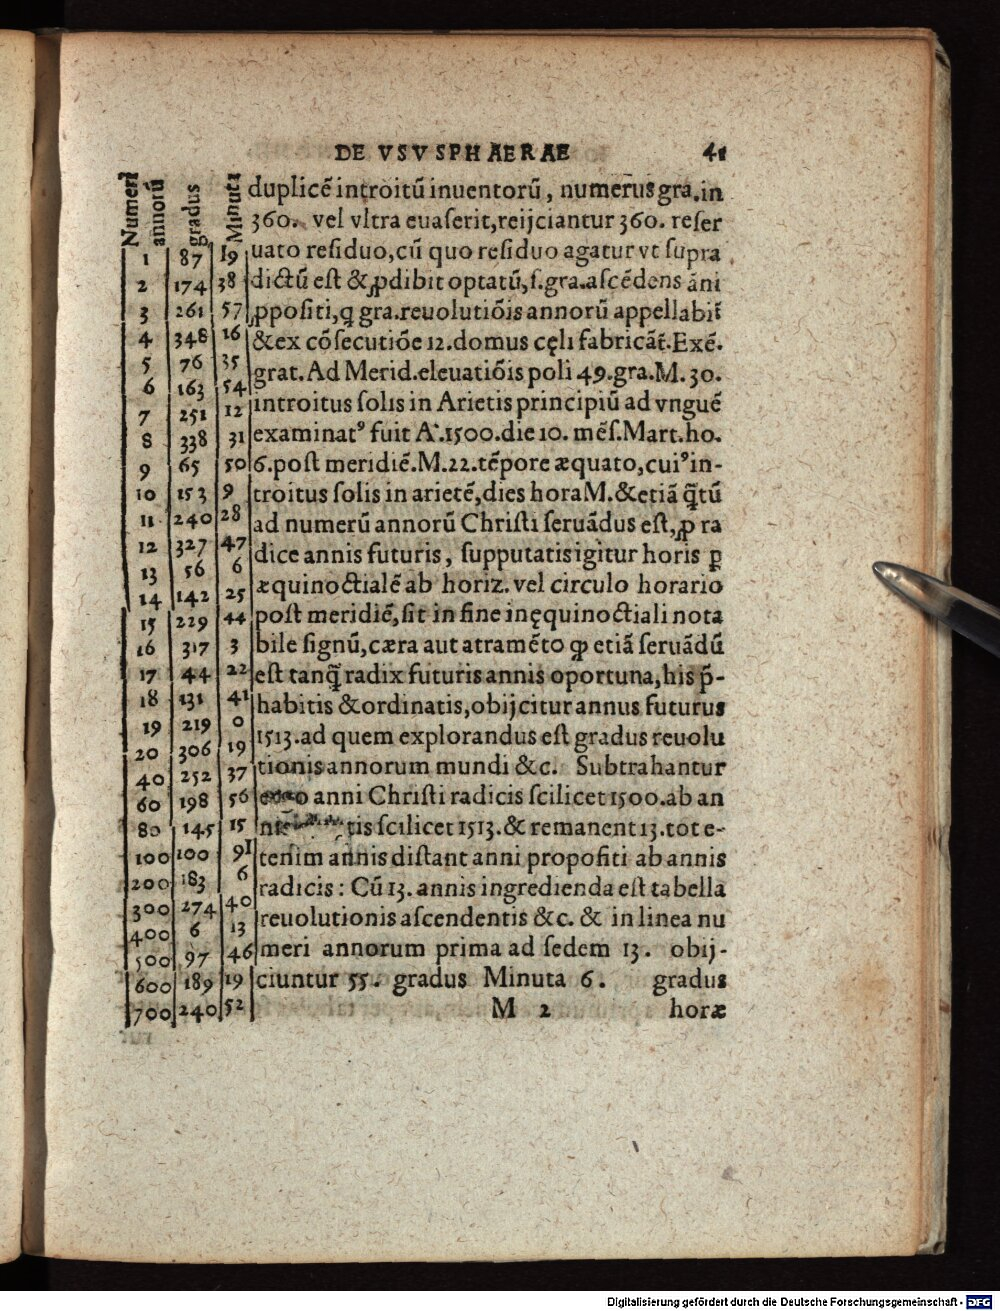 DE VSV SPHAERAE 41
Numeri annorū | gradus | Minuta
1 87 19
2 174 38
3 261 57
4 348 16
5 76 35
6 163 54
7 251 12
8 338 31
9 65 50
10 153 9
11 240 28
12 327 47
13 56 6
14 142 25
15 229 44
16 317 3
17 44 22
18 131 41
19 219 0
20 306 19
40 252 37
60 198 56
80 145 15
100 100 91
200 183 6
300 274 40
400 6 13
500 97 46
600 189 19
700 240 52
duplicē introitū inuentorū, numerus gra. in
360. vel vltra euaserit, reijciantur 360. reser
uato residuo, cū quo residuo agatur vt supra
dictū est & ꝓdibit optatū, s. gra. ascēdens āni
ꝓpositi, q̄ gra. reuolutiōis annorū appellabit̄
& ex cōsecutiōe 12. domus cęli fabricāt̄. Exē.
grat. Ad Merid. eleuatiōis poli 49. gra. M. 30.
introitus solis in Arietis principiū ad vnguē
examinatꝰ fuit A°. 1500. die 10. mēs. Mart. ho.
6. post meridiē. M. 22. tēpore æquato, cuiꝰ in-
troitus solis in arietē, dies hora M. & etiā q̄tū
ad numerū annorū Christi seruādus est, ꝓ ra
dice annis futuris, supputatis igitur horis ꝑ
æquinoctialē ab horiz. vel circulo horario
post meridiē, sit in fine inęquinoctiali nota
bile signū, cæra aut atramēto ꝙ etiā seruādū
est tanq̄ radix futuris annis oportuna, his p̄-
habitis & ordinatis, obijcitur annus futurus
1513. ad quem explorandus est gradus reuolu
tionis annorum mundi &c. Subtrahantur
anni Christi radicis scilicet 1500. ab an
tis scilicet 1513. & remanent 13. tot e-
tenim annis distant anni propositi ab annis
radicis: Cū 13. annis ingredienda est tabella
reuolutionis ascendentis &c. & in linea nu
meri annorum prima ad sedem 13. obij-
ciuntur 55. gradus Minuta 6. gradus
M 2 horæ
Digitalisierung gefördert durch die Deutsche Forschungsgemeinschaft - DFG